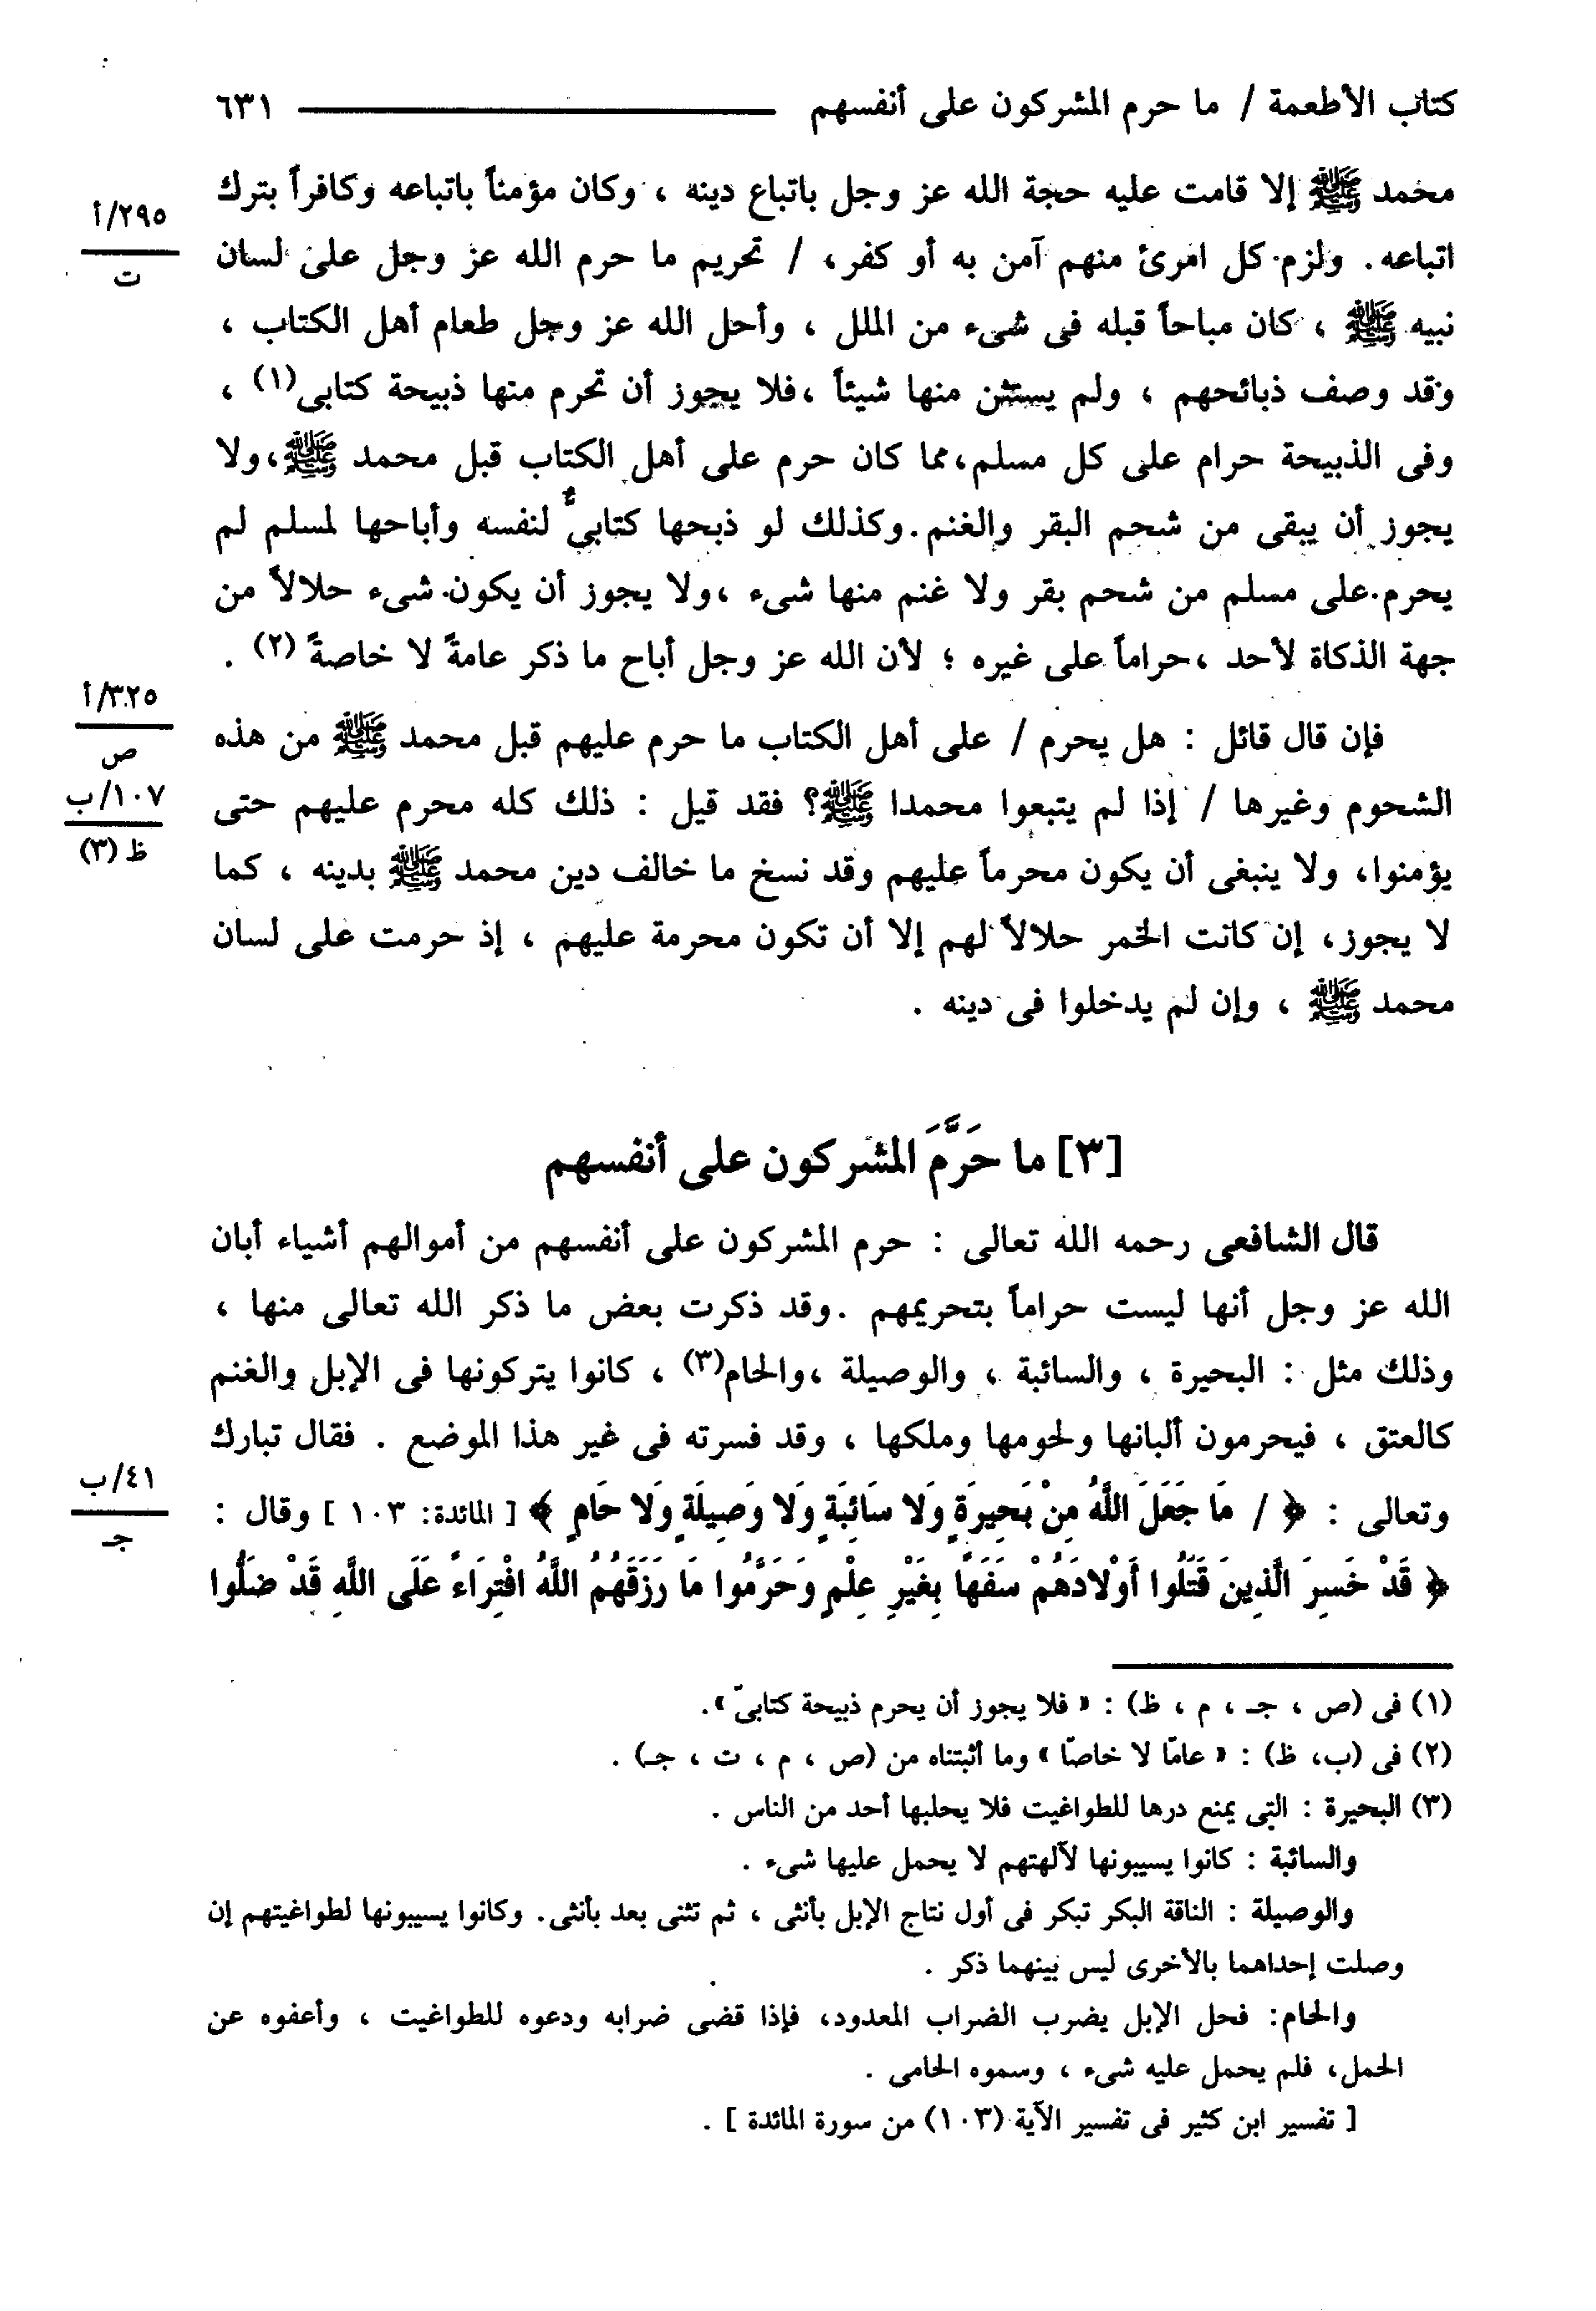 كتاب الأطعمة / ما حرم المشركون على أنفسهم ٦٣١
محمد ﷺ إلا قامت عليه حجة الله عز وجل باتباع دينه ، وكان مؤمناً باتباعه وكافراً بترك
٢٩٥/أ
ت
اتباعه . ولزم كل امرئ منهم آمن به أو كفر، / تحريم ما حرم الله عز وجل على لسان
نبيه ﷺ ، كان مباحاً قبله فى شىء من الملل ، وأحل الله عز وجل طعام أهل الكتاب ،
وقد وصف ذبائحهم ، ولم يستثن منها شيئاً ،فلا يجوز أن تحرم منها ذبيحة كتابى(١) ،
وفى الذبيحة حرام على كل مسلم،مما كان حرم على أهل الكتاب قبل محمد ﷺ،ولا
يجوز أن يبقى من شحم البقر والغنم.وكذلك لو ذبحها كتابىٌّ لنفسه وأباحها لمسلم لم
يحرم على مسلم من شحم بقر ولا غنم منها شىء ،ولا يجوز أن يكون شىء حلالاً من
جهة الذكاة لأحد ،حراماً على غيره ؛ لأن الله عز وجل أباح ما ذكر عامةً لا خاصةً (٢) .
٣٢٥/أ
ص
فإن قال قائل : هل يحرم / على أهل الكتاب ما حرم عليهم قبل محمد ﷺ من هذه
١٠٧/ب
ظ (٣)
الشحوم وغيرها / إذا لم يتبعوا محمدا ﷺ؟ فقد قيل : ذلك كله محرم عليهم حتى
يؤمنوا، ولا ينبغى أن يكون محرماً عليهم وقد نسخ ما خالف دين محمد ﷺ بدينه ، كما
لا يجوز، إن كانت الخمر حلالاً لهم إلا أن تكون محرمة عليهم ، إذ حرمت على لسان
محمد ﷺ ، وإن لم يدخلوا فى دينه .
[٣] ما حَرَّمَ المشركون على أنفسهم
قال الشافعى رحمه الله تعالى : حرم المشركون على أنفسهم من أموالهم أشياء أبان
الله عز وجل أنها ليست حراماً بتحريمهم .وقد ذكرت بعض ما ذكر الله تعالى منها ،
وذلك مثل : البحيرة ، والسائبة ، والوصيلة ،والحام(٣) ، كانوا يتركونها فى الإبل والغنم
كالعتق ، فيحرمون ألبانها ولحومها وملكها ، وقد فسرته فى غير هذا الموضع . فقال تبارك
٤١/ب
جـ
وتعالى : ﴿ / مَا جَعَلَ اللَّهُ مِنْ بَحِيرَةٍ وَلا سَائِبَةٍ وَلا وَصِيلَةٍ وَلا حَامٍ ﴾ [ المائدة: ١٠٣ ] وقال :
﴿ قَدْ خَسِرَ الَّذِينَ قَتَلُوا أَوْلادَهُمْ سَفَهًا بِغَيْرِ عِلْمٍ وَحَرَّمُوا مَا رَزَقَهُمُ اللَّهُ افْتِرَاءً عَلَى اللَّهِ قَدْ ضَلُّوا
(١) فى (ص ، جـ ، م ، ظ) : « فلا يجوز أن يحرم ذبيحة كتابىّ ».
(٢) فى (ب، ظ) : « عامّا لا خاصّا » وما أثبتناه من (ص ، م ، ت ، جـ) .
(٣) البحيرة : التى يمنع درها للطواغيت فلا يحلبها أحد من الناس .
والسائبة : كانوا يسيبونها لآلهتهم لا يحمل عليها شىء .
والوصيلة : الناقة البكر تبكر فى أول نتاج الإبل بأنثى ، ثم تثنى بعد بأنثى. وكانوا يسيبونها لطواغيتهم إن
وصلت إحداهما بالأخرى ليس بينهما ذكر .
والحام: فحل الإبل يضرب الضراب المعدود، فإذا قضى ضرابه ودعوه للطواغيت ، وأعفوه عن
الحمل، فلم يحمل عليه شىء ، وسموه الحامى .
[ تفسير ابن كثير فى تفسير الآية (١٠٣) من سورة المائدة ] .